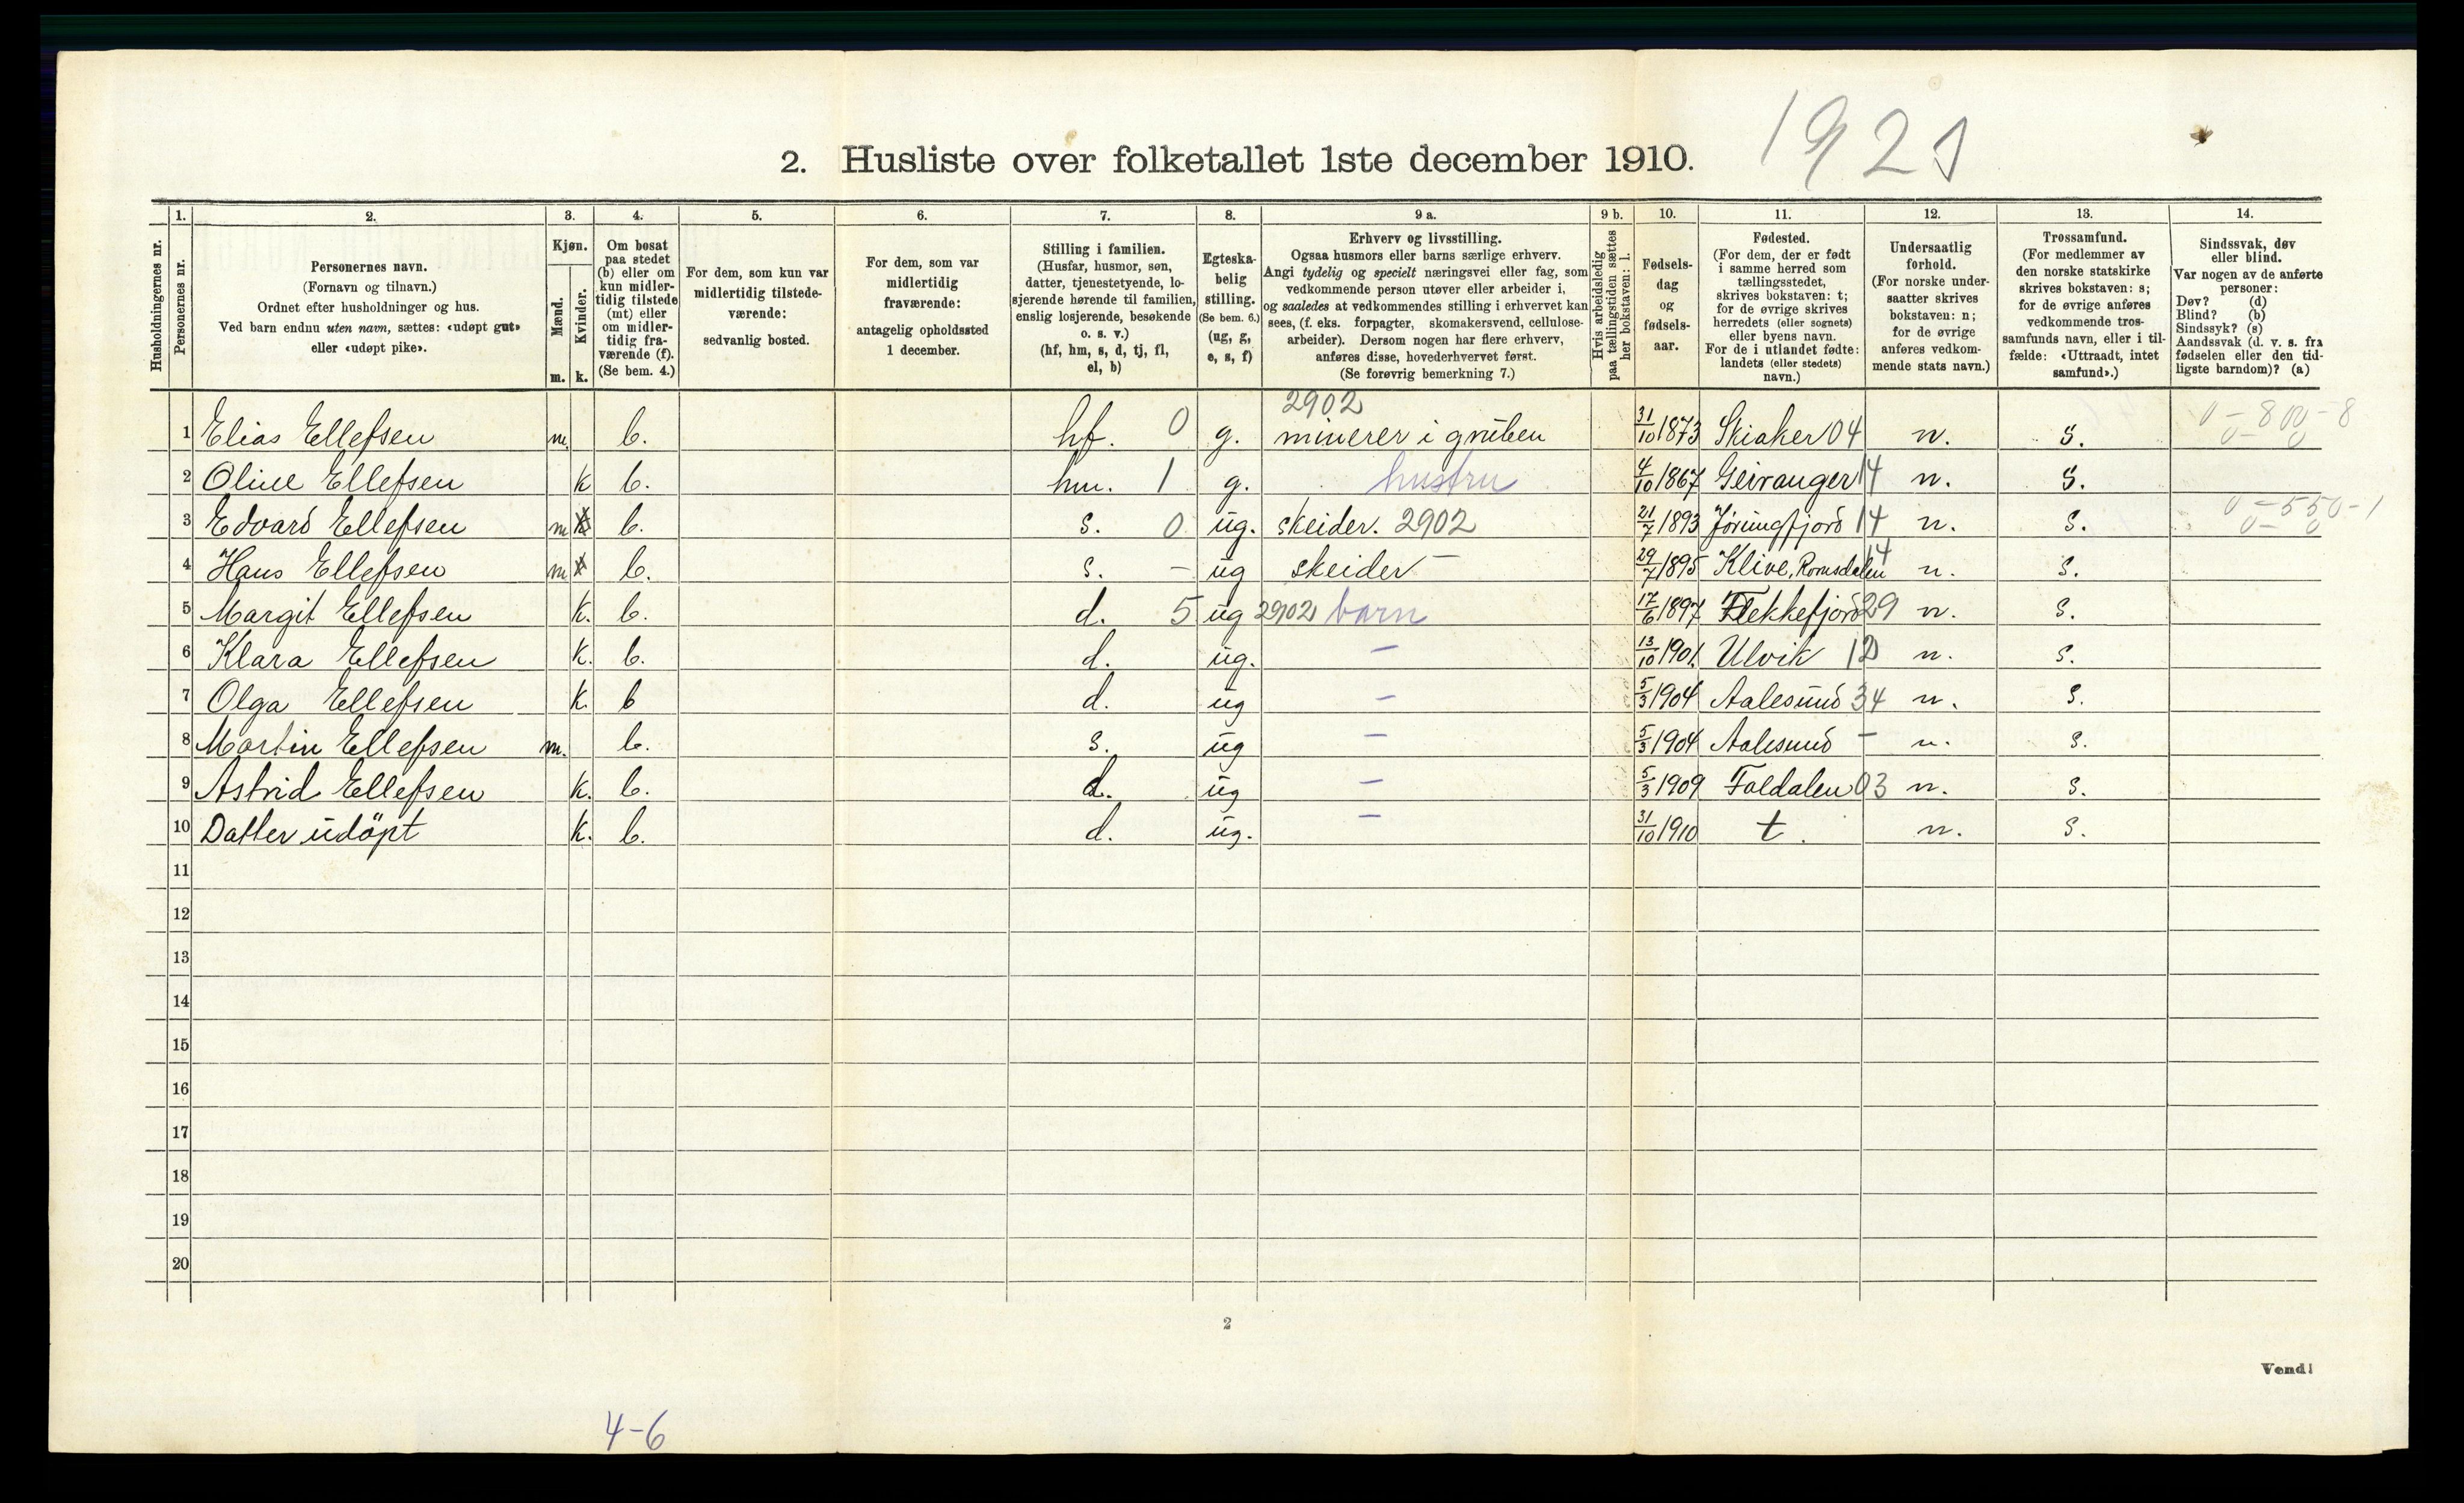 1921
2. Husliste over folketallet 1ste december 1910.
Husholdningernes nr.
1. Personernes nr.
2. Personernes navn. (Fornavn og tilnavn.) Ordnet efter husholdninger og hus. Ved barn endnu uten navn, sættes: «udøpt gut» eller «udøpt pike».
3. Kjøn. Mænd. m. Kvinder. k.
4. Om bosat paa stedet (b) eller om kun midlertidig tilstede (mt) eller om midlertidig fraværende (f). (Se bem. 4.)
5. For dem, som kun var midlertidig tilstedeværende: sedvanlig bosted.
6. For dem, som var midlertidig fraværende: antagelig opholdssted 1 december.
7. Stilling i familien. (Husfar, husmor, søn, datter, tjenestetyende, losjerende hørende til familien, enslig losjerende, besøkende o. s. v.) (hf, hm, s, d, tj, fl, el, b)
8. Egteskabelig stilling. (Se bem. 6.) (ug, g, e, s, f)
9 a. Erhverv og livsstilling. Ogsaa husmors eller barns særlige erhverv. Angi tydelig og specielt næringsvei eller fag, som vedkommende person utøver eller arbeider i, og saaledes at vedkommendes stilling i erhvervet kan sees, (f. eks. forpagter, skomakersvend, cellulosearbeider). Dersom nogen har flere erhverv, anføres disse, hovederhvervet først. (Se forøvrig bemerkning 7.)
9 b. Hvis arbeidsledig paa tællingstiden sættes her bokstaven: l.
10. Fødselsdag og fødselsaar.
11. Fødested. (For dem, der er født i samme herred som tællingsstedet, skrives bokstaven: t; for de øvrige skrives herredets (eller sognets) eller byens navn. For de i utlandet fødte: landets (eller stedets) navn.)
12. Undersaatlig forhold. (For norske undersaatter skrives bokstaven: n; for de øvrige anføres vedkommende stats navn.)
13. Trossamfund. (For medlemmer av den norske statskirke skrives bokstaven: s; for de øvrige anføres vedkommende trossamfunds navn, eller i tilfælde: «Uttraadt, intet samfund».)
14. Sindssvak, døv eller blind. Var nogen av de anførte personer: Døv? (d) Blind? (b) Sindssyk? (s) Aandssvak (d. v. s. fra fødselen eller den tidligste barndom)? (a)
2902
1 Elias Ellefsen m. b. hf. 0 g. minerer i gruben 31/10 1873 Skiaker 04 n. s.
2 Oline Ellefsen k b. hm. 1 g. hustru 4/10 1867 Geiranger 14 n. s.
3 Edvard Ellefsen m b. s. 0 ug. skeider. 2902 21/7 1893 Jørungfjord 14 n. s.
4 Hans Ellefsen m b. s. - ug skeider - 29/7 1895 Klive, Romsdalen 14 n. s.
5 Margit Ellefsen k. b. d. 5 ug 2902 barn 17/6 1897 Flekkefjord 29 n. s.
6 Klara Ellefsen k. b. d. ug. - 13/10 1901. Ulvik 12 n. s.
7 Olga Ellefsen k. b d. ug - 5/3 1904 Aalesund 34 n. s.
8 Martin Ellefsen m. b. s. ug - 5/3 1904 Aalesund - n. s.
9 Astrid Ellefsen k. b. d. ug - 5/3 1909 Foldalen 03 n. s.
10 Datter udöpt k. b. d. ug. - 31/10 1910 t. n. s.
11
12
13
14
15
16
17
18
19
20
2
Vend!
4-6